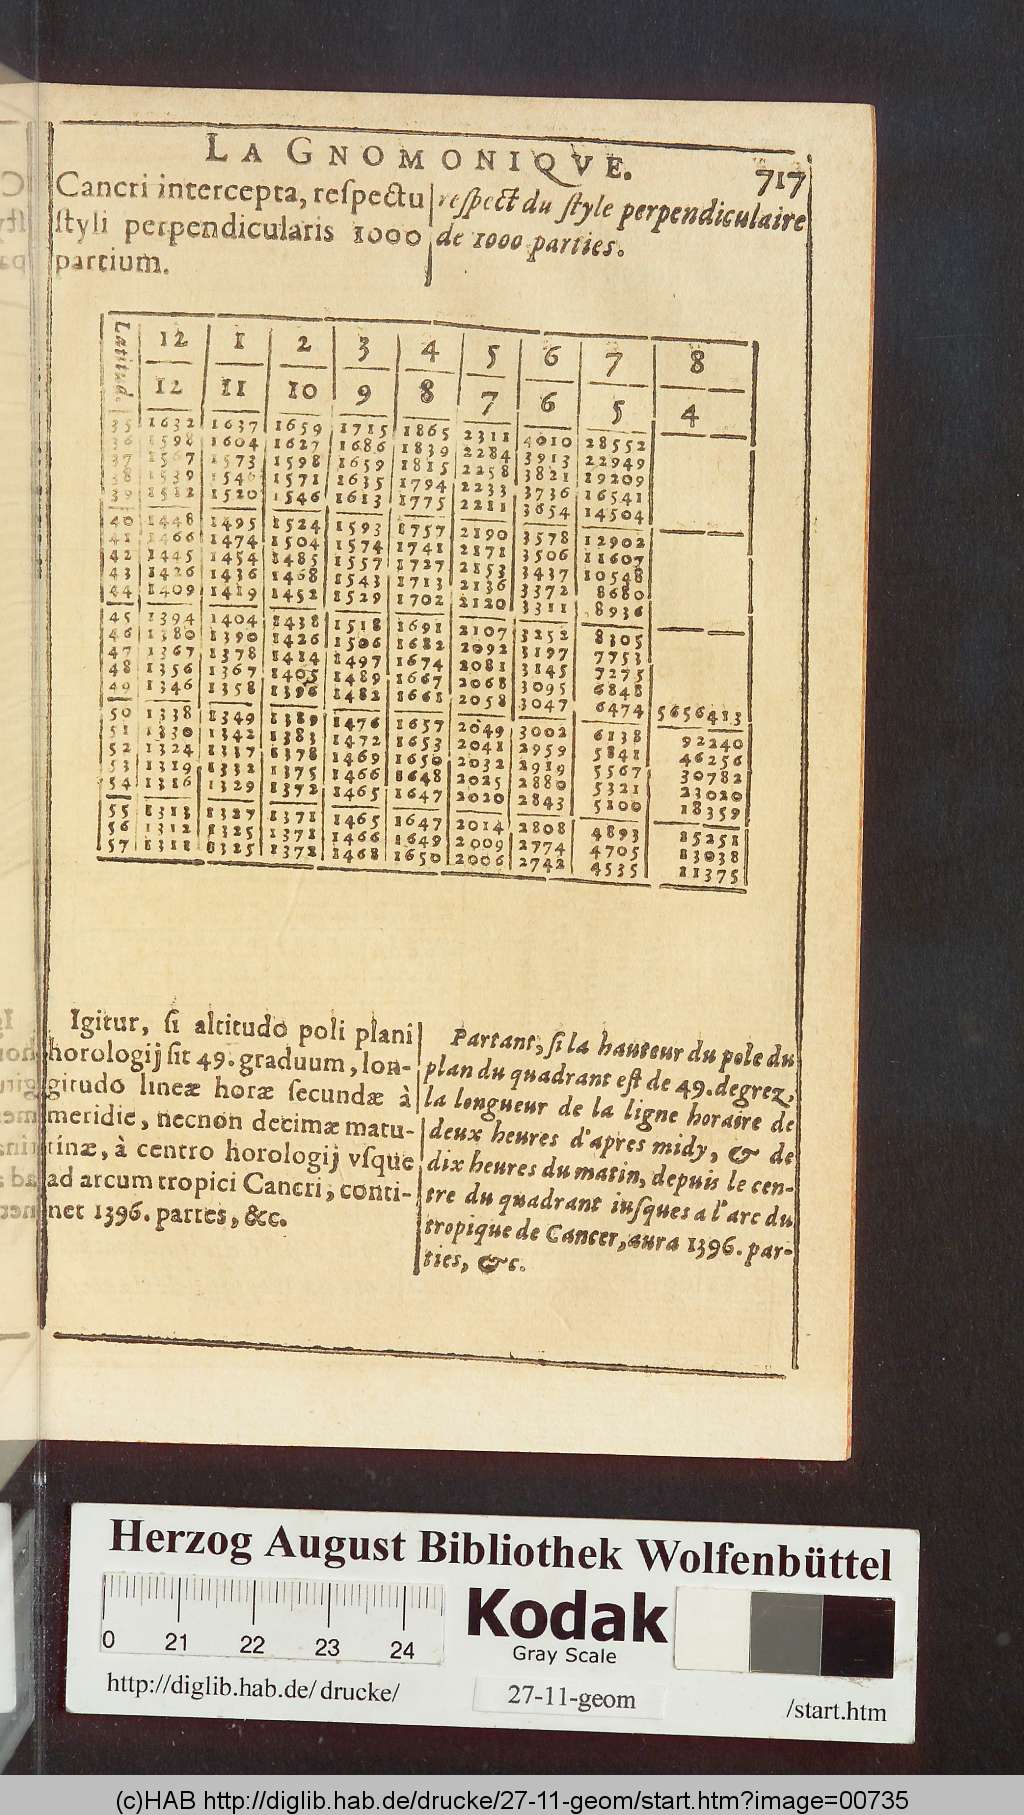 LA GNOMONIQVE.
717
Cancri intercepta, reſpectu
ſtyli perpendicularis 1000
partium.
reſpect du ſtyle perpendiculaire
de 1000 parties.
Latitud. 12 1 2 3 4 5 6 7 8
12 11 10 9 8 7 6 5 4
35 1632 1637 1659 1715 1865 2311 4010 28552
36 1598 1604 1627 1686 1839 2284 3913 22949
37 1567 1573 1598 1659 1815 2258 3821 19209
38 1539 1546 1571 1635 1794 2233 3736 16541
39 1512 1520 1546 1613 1775 2211 3654 14504
40 1448 1495 1524 1593 1757 2190 3578 12902
41 1466 1474 1504 1574 1741 2171 3506 11607
42 1445 1454 1485 1557 1727 2153 3437 10548
43 1426 1436 1468 1543 1713 2136 3372 8680
44 1409 1419 1452 1529 1702 2120 3311 8936
45 1394 1404 1438 1518 1691 2107 3252 8305
46 1380 1390 1426 1506 1682 2092 3197 7753
47 1367 1378 1414 1497 1674 2081 3145 7275
48 1356 1367 1405 1489 1667 2068 3095 6848
49 1346 1358 1396 1482 1661 2058 3047 6474 5656413
50 1338 1349 1389 1476 1657 2049 3002 6138 92240
51 1330 1342 1383 1472 1653 2041 2959 5841 46256
52 1324 1337 1378 1469 1650 2032 2919 5567 30782
53 1319 1332 1375 1466 1648 2025 2880 5321 23020
54 1316 1329 1372 1465 1647 2020 2843 5100 18359
55 1313 1327 1371 1465 1647 2014 2808 4893 15251
56 1312 1325 1371 1466 1649 2009 2774 4705 13038
57 1311 1325 1372 1468 1650 2006 2742 4535 11375
Igitur, ſi altitudo poli plani
horologij ſit 49. graduum, lon-
gitudo lineæ horæ ſecundæ à
meridie, necnon decimæ matu-
tinæ, à centro horologij vſque
ad arcum tropici Cancri, conti-
net 1396. partes, &c.
Partant, ſi la hauteur du pole du
plan du quadrant eſt de 49. degrez,
la longueur de la ligne horaire de
deux heures d'apres midy, & de
dix heures du matin, depuis le cen-
tre du quadrant iuſques a l'arc du
tropique de Cancer, aura 1396. par-
ties, &c.
Herzog August Bibliothek Wolfenbüttel
0 21 22 23 24
Kodak
Gray Scale
http://diglib.hab.de/drucke/
27-11-geom
/start.htm
(c)HAB http://diglib.hab.de/drucke/27-11-geom/start.htm?image=00735